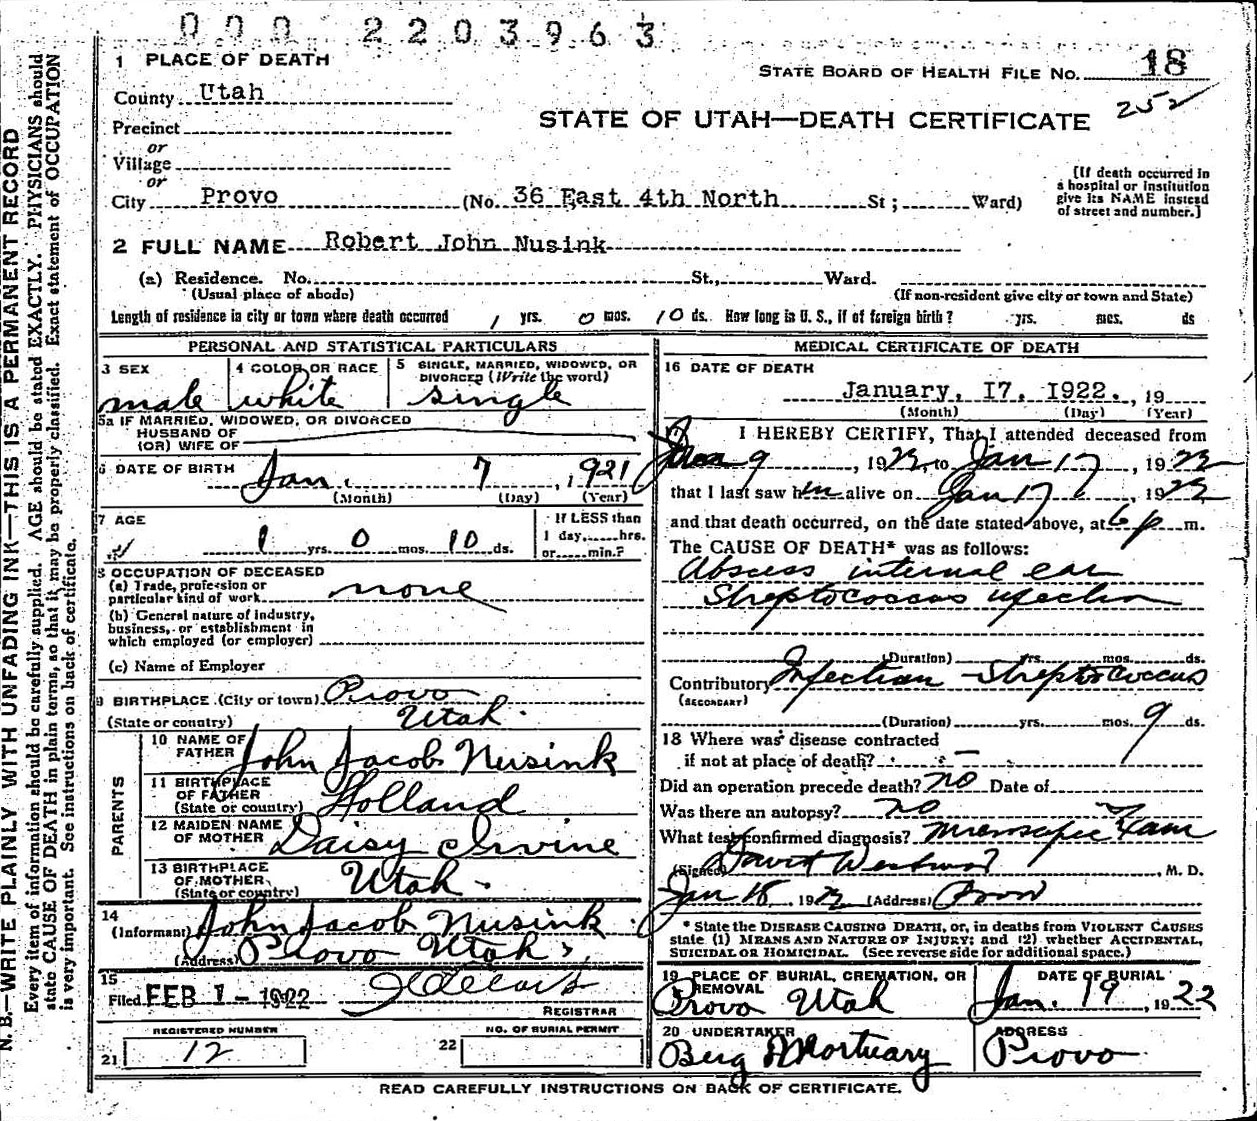 000 2203963
1 PLACE OF DEATH
STATE BOARD OF HEALTH FILE NO. 18
County Utah
252
STATE OF UTAH—DEATH CERTIFICATE
Precinct
or
Village
or
City Provo (No. 36 East 4th North St; Ward)
[If death occurred in
a hospital or institution
give its NAME instead
of street and number.]
2 FULL NAME Robert John Nusink
(a) Residence. No. St., Ward.
(Usual place of abode)
(If non-resident give city or town and State)
Length of residence in city or town where death occurred 1 yrs. 0 mos. 10 ds. How long in U. S., if of foreign birth? yrs. mos. ds
PERSONAL AND STATISTICAL PARTICULARS
3 SEX
male
4 COLOR OR RACE
white
5 SINGLE, MARRIED, WIDOWED, OR
DIVORCED (Write the word)
single
5a IF MARRIED, WIDOWED, OR DIVORCED
HUSBAND OF
(OR) WIFE OF
6 DATE OF BIRTH
Jan. 7, 1921
(Month) (Day) (Year)
7 AGE
1 yrs. 0 mos. 10 ds.
If LESS than
1 day,......hrs.
or......min.?
8 OCCUPATION OF DECEASED
(a) Trade, profession or
particular kind of work none
(b) General nature of industry,
business, or establishment in
which employed (or employer)
(c) Name of Employer
9 BIRTHPLACE (City or town) Provo
(State or country) Utah.
PARENTS
10 NAME OF
FATHER John Jacob Nusink
11 BIRTHPLACE
OF FATHER
(State or country) Holland
12 MAIDEN NAME
OF MOTHER Daisy Irvine
13 BIRTHPLACE
OF MOTHER,
(State or country) Utah.
14
(Informant) John Jacob Nusink
(Address) Provo Utah,
15
Filed FEB 1 - 1922
REGISTRAR
REGISTERED NUMBER
21 12
NO. OF BURIAL PERMIT
22
MEDICAL CERTIFICATE OF DEATH
16 DATE OF DEATH
January, 17, 1922., 19
(Month) (Day) (Year)
I HEREBY CERTIFY, That I attended deceased from
Jan 9, 1922, to Jan 17, 1922
that I last saw him alive on Jan 17, 1922
and that death occurred, on the date stated above, at 6 p m.
The CAUSE OF DEATH* was as follows:
Abscess internal ear
Streptococcus infection
(Duration) yrs. mos. ds.
Contributory Infection - Streptococcus
(SECONDARY)
(Duration) yrs. mos. 9 ds.
18 Where was disease contracted
if not at place of death? —
Did an operation precede death? no Date of
Was there an autopsy? no
What test confirmed diagnosis? Microscopic Exam
(Signed) David Westwood, M. D.
Jan 18, 1922 (Address) Provo
* State the DISEASE CAUSING DEATH, or, in deaths from VIOLENT CAUSES
state (1) MEANS AND NATURE OF INJURY; and (2) whether ACCIDENTAL,
SUICIDAL OR HOMICIDAL. (See reverse side for additional space.)
19 PLACE OF BURIAL, CREMATION, OR
REMOVAL
Provo Utah
DATE OF BURIAL
Jan. 19, 1922
20 UNDERTAKER
Berg Mortuary
ADDRESS
Provo
READ CAREFULLY INSTRUCTIONS ON BACK OF CERTIFICATE.
N. B.—WRITE PLAINLY WITH UNFADING INK—THIS IS A PERMANENT RECORD
Every item of information should be carefully supplied. AGE should be stated EXACTLY. PHYSICIANS should
state CAUSE OF DEATH in plain terms, so that it may be properly classified. Exact statement of OCCUPATION
is very important. See instructions on back of certificate.